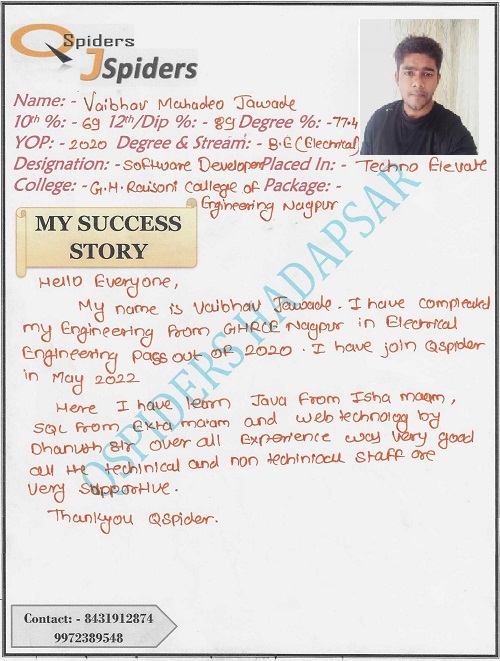 QSpiders
JSpiders
Name: - Vaibhav Mahadeo Jawade
10th %: - 69 12th/Dip %: - 89 Degree %: -77.4
YOP: - 2020 Degree & Stream: - B.E (Electrical)
Designation: - Software Developer Placed In: - Techno Elevate
College: - G.H. Raisoni College of Package: -
Engineering Nagpur
MY SUCCESS
STORY
Hello Everyone,
My name is Vaibhav Jawade. I have compleated
my Engineering From GHRCE Nagpur in Electrical
Engineering pass out of 2020. I have join Qspider
in May 2022
Here I have learn Java From Isha maam,
SQL From Ekta maam and web technology by
Dhanush sir over all Experience way very good
all the techinical and non techinicall staff are
very supportive.
Thankyou QSpider.
QSPIDERS HADAPSAR
Contact: - 8431912874
9972389548